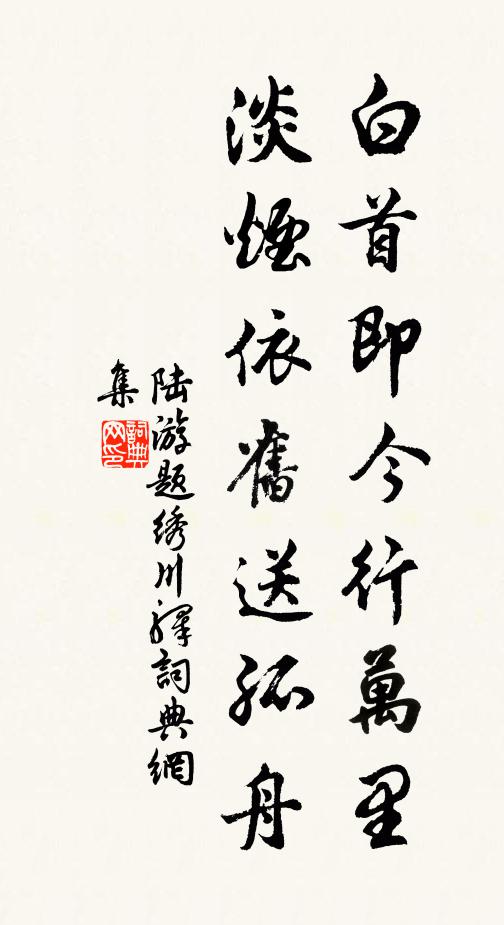 白首即今行萬里
淡煙依舊送孤舟
陆游题绣川驛詞典網
集
詞典网印